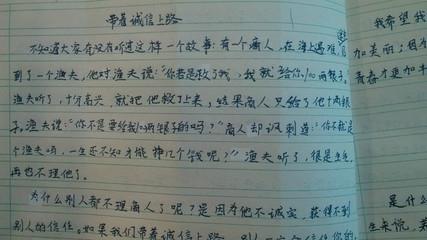 带着诚信上路
不知道大家有没有听过这样一个故事:有一个商人,在海上遇难,遇
到了一个渔夫,他对渔夫说:"你若是救了我,我就给你100两银子。
渔夫听了,十分高兴,就把他救了上来,结果商人只给了他十两银
子。渔夫说:"你不是要给我100两银子的吗?"商人却讽刺道:"你不就是
个渔夫吗,一生还不知才能挣几个钱呢?"渔夫听了,很是生气,
再也不理他了。
为什么别人都不理商人了呢?是因为他不诚实,获得不到
别人的信任。如果我们带着诚信上路,别
我希望我
加美丽;因为
青春才更加
是什么
生来说,